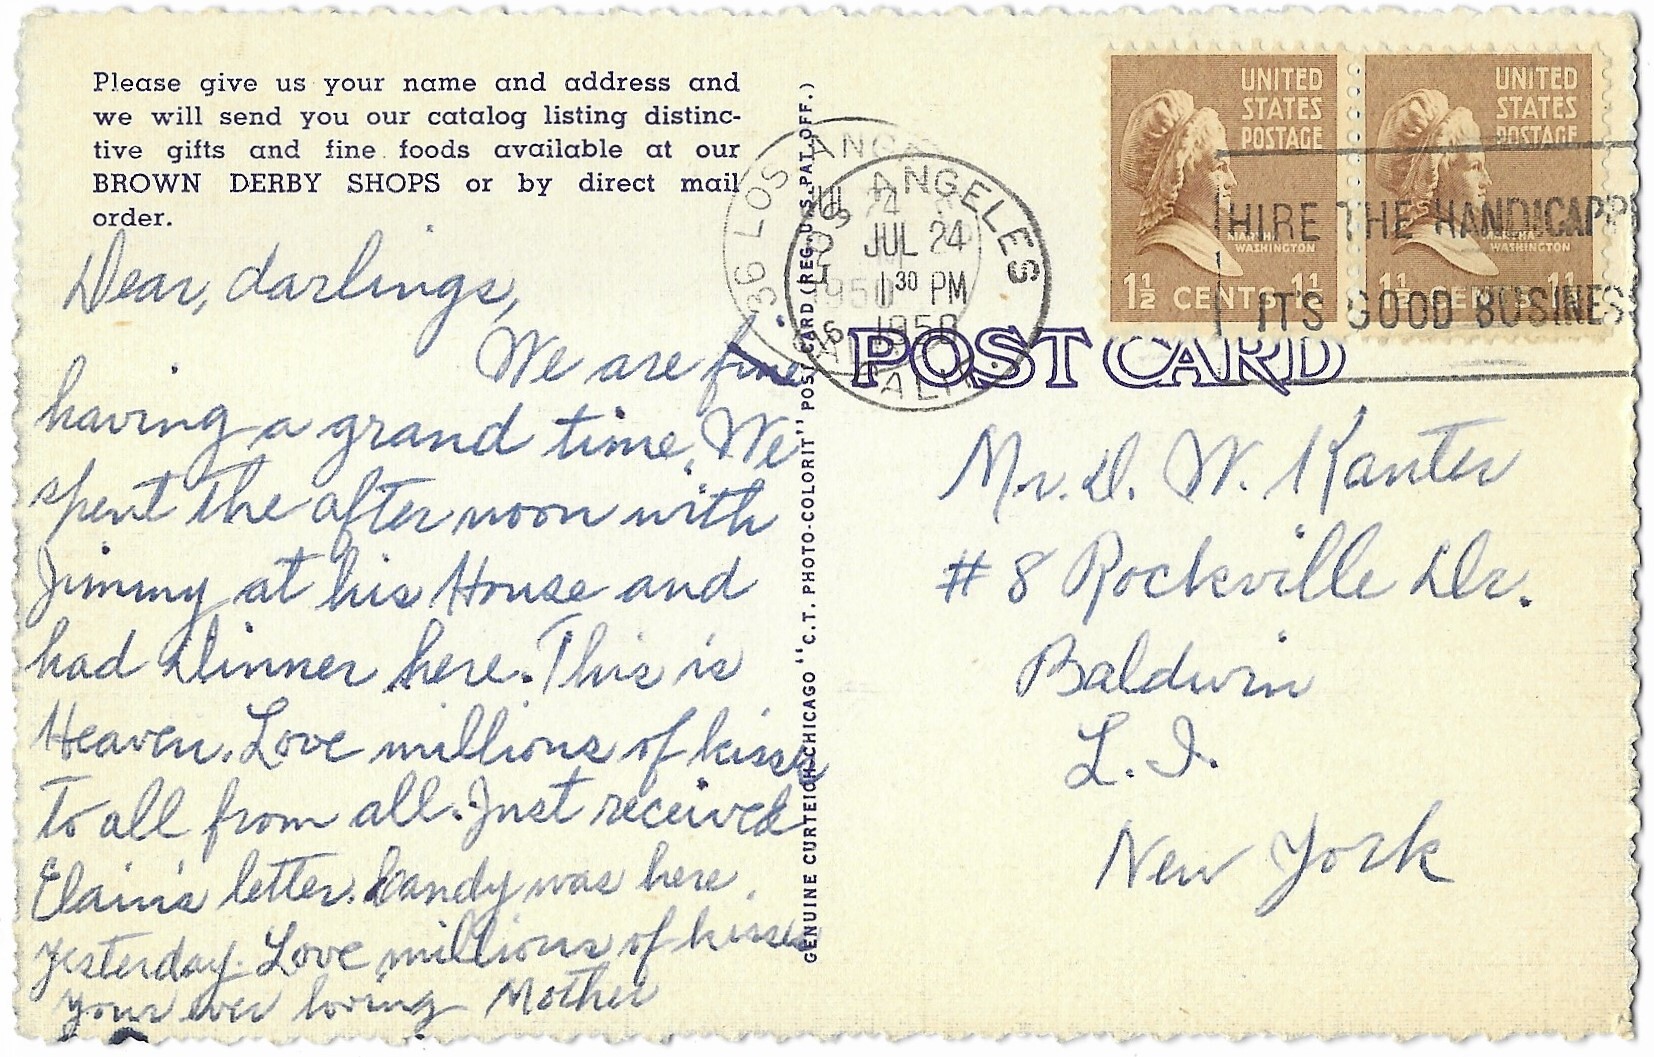 Please give us your name and address and
we will send you our catalog listing distinc-
tive gifts and fine foods available at our
BROWN DERBY SHOPS or by direct mail
order.
Dear, darlings,
We are fine
having a grand time. We
spent the after noon with
Jimmy at his House and
had Dinner here. This is
Heaven. Love millions of kisses
To all from all. Just received
Elain's letter. Candy was here
yesterday. Love millions of kisses
your ever loving Mother
GENUINE CURTEICH-CHICAGO "C.T. PHOTO-COLORIT" POST CARD (REG. U.S. PAT. OFF.)
36 LOS ANGELES
JUL 24
1950
ANGELES
JUL 24
1 30 PM
1950
CALIF.
UNITED
STATES
POSTAGE
MARTHA
WASHINGTON
1½ CENTS 1½
UNITED
STATES
POSTAGE
WASHINGTON
1½ CENTS 1½
HIRE THE HANDICAPP
IT'S GOOD BUSINESS
POST CARD
Mr. D. W. Kanter
# 8 Rockville Dr.
Baldwin
L. I.
New York